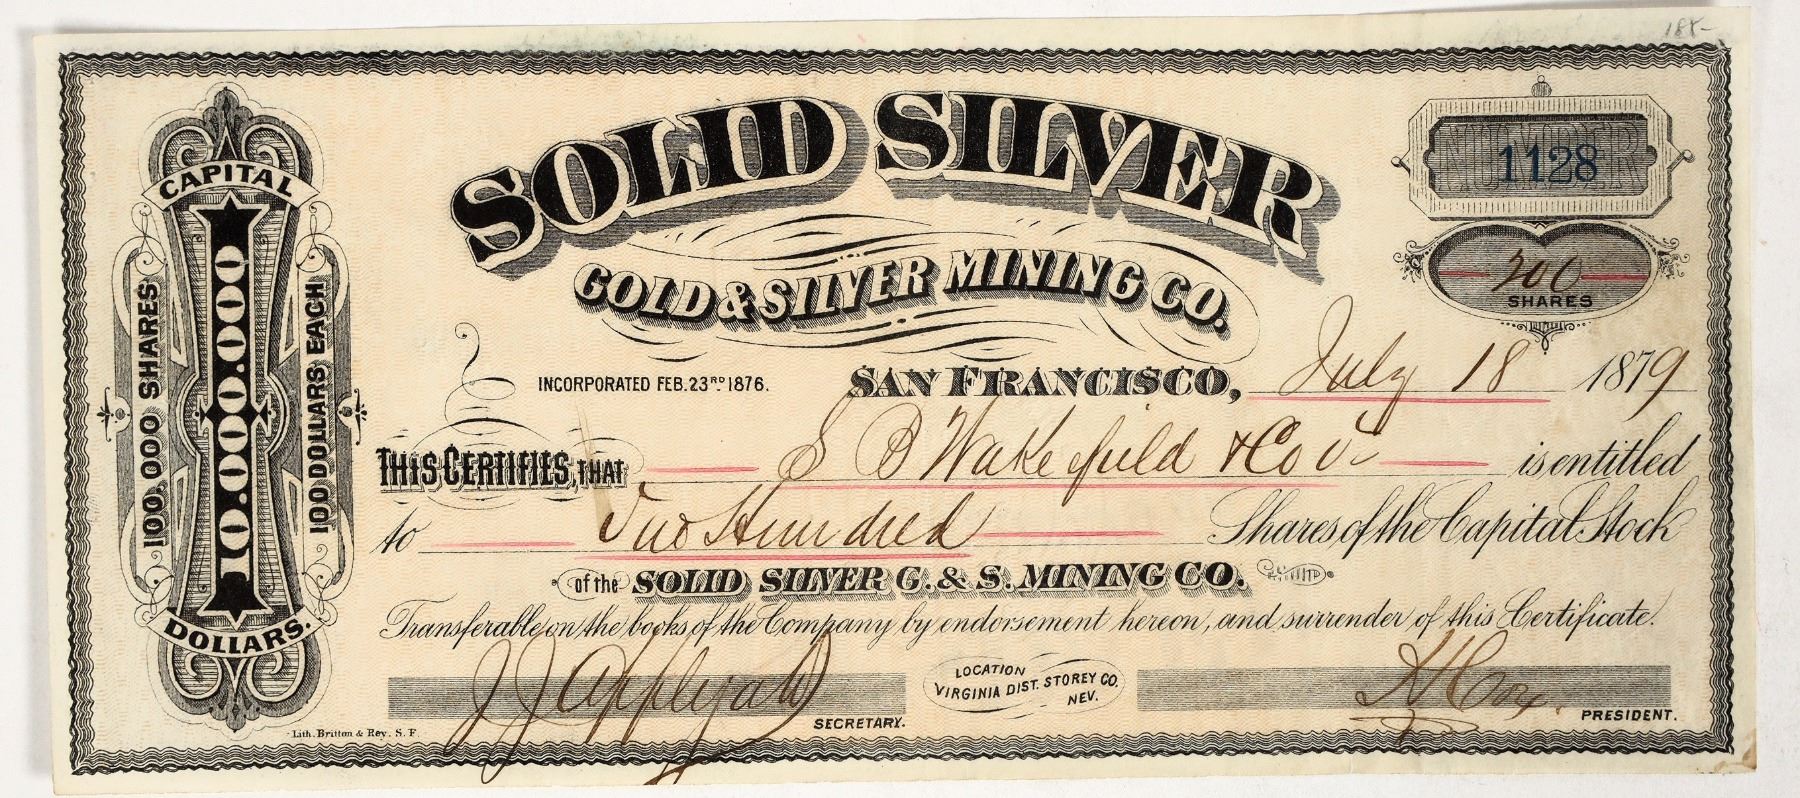 188-
SOLID SILVER
GOLD & SILVER MINING CO.
NUMBER
1128
200
SHARES
CAPITAL
10.000.000
DOLLARS.
100.000 SHARES
100 DOLLARS EACH
INCORPORATED FEB. 23RD 1876.
SAN FRANCISCO, July 18 1879
THIS CERTIFIES, THAT S B Wakefield & Co is entitled
to Two Hundred Shares of the Capital Stock
of the SOLID SILVER G. & S. MINING CO.
Transferable on the books of the Company by endorsement hereon, and surrender of this Certificate.
J J Applegate
SECRETARY.
LOCATION
VIRGINIA DIST. STOREY CO.
NEV.
PRESIDENT.
Lith. Britton & Rey. S. F.